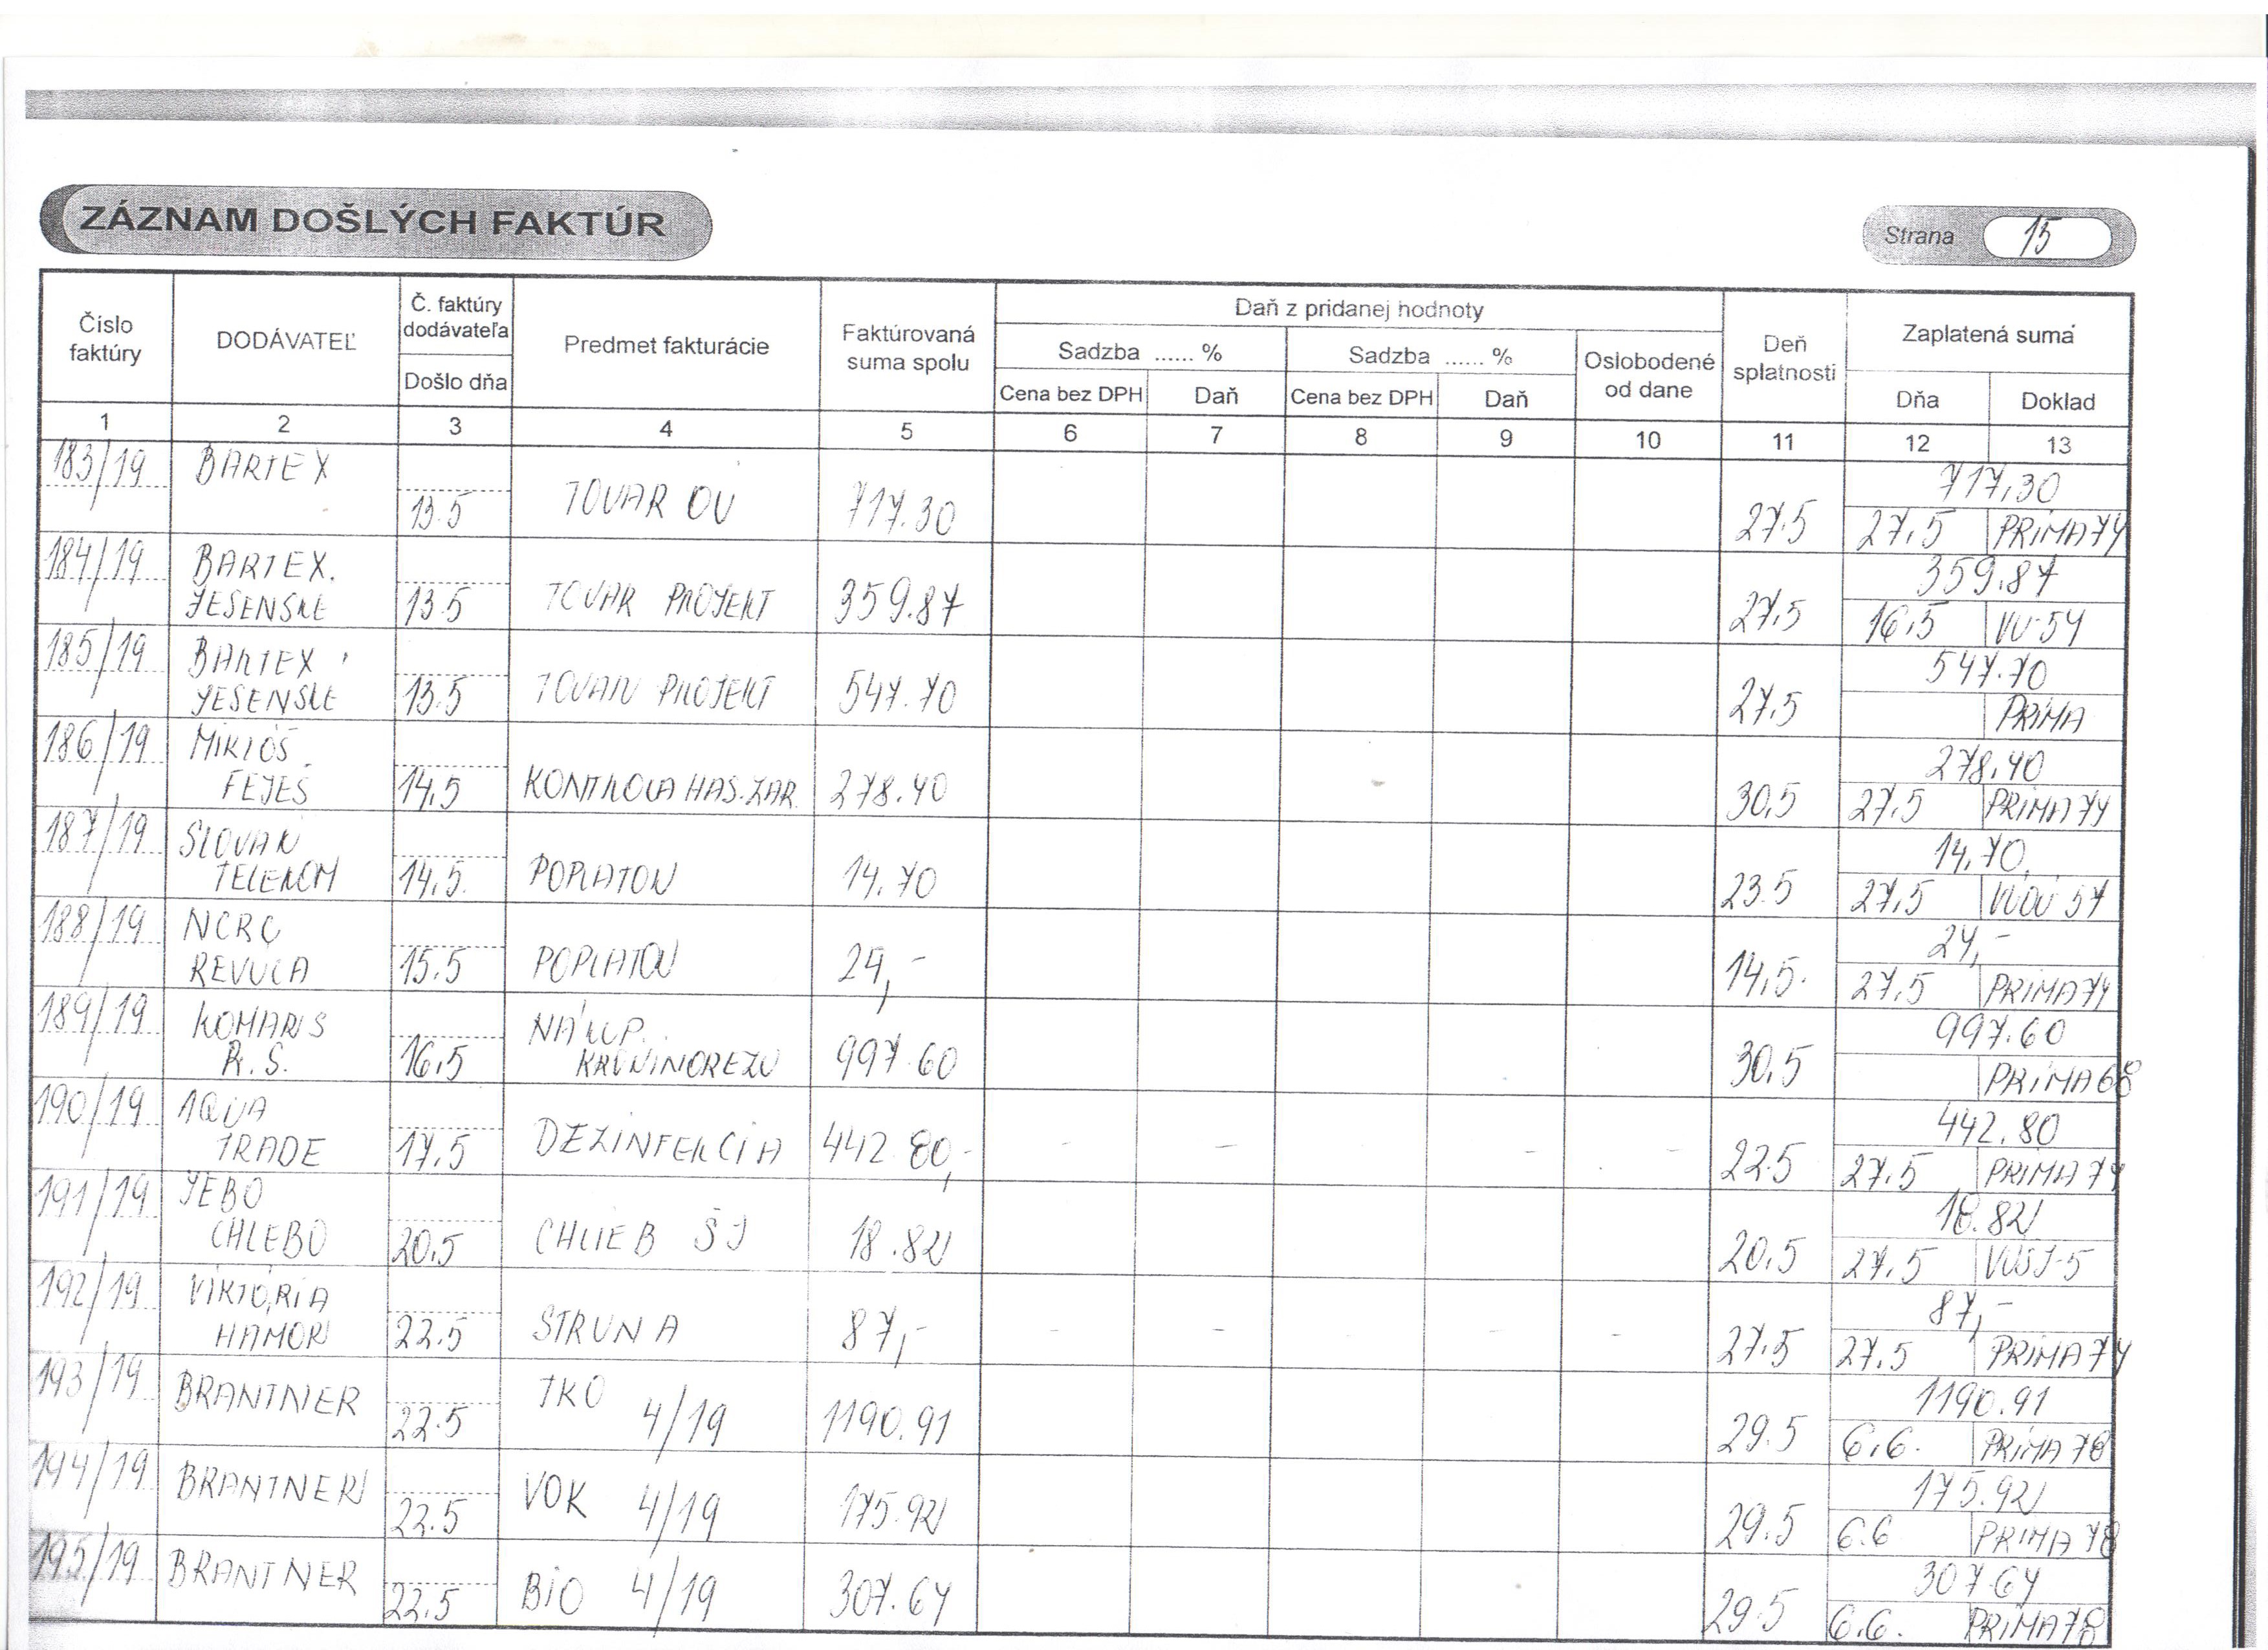 ZÁZNAM DOŠLÝCH FAKTÚR
Strana 15
Číslo faktúry
DODÁVATEĽ
Č. faktúry dodávateľa
Došlo dňa
Predmet fakturácie
Faktúrovaná suma spolu
Daň z pridanej hodnoty
Sadzba ...... %
Sadzba ...... %
Oslobodené od dane
Cena bez DPH Daň Cena bez DPH Daň
Deň splatnosti
Zaplatená suma
Dňa Doklad
1 2 3 4 5 6 7 8 9 10 11 12 13
183/19 BARTEX 717,30
13.5 TOVAR OV 717.30 27.5 27.5 PRIMA 74
184/19 BARTEX. 359.87
JESENSKE 13.5 TOVAR PROJEKT 359.87 27.5 16.5 VU-54
185/19 BARTEX 547.70
JESENSKE 13.5 TOVAR PROJEKT 547.70 27.5 PRIMA
186/19 MIKLÓŠ 278.40
FEJEŠ 14.5 KONTROLA HAS.ZAR. 278.40 30.5 27.5 PRIMA 74
187/19 SLOVAK 14,70
TELEKOM 14.5. POPLATOK 14.70 23.5 27.5 57
188/19 NCRC 24,-
REVUCA 15.5 POPLATOK 24,- 14,5. 27.5 PRIMA 74
189/19 KOMARS NÁKUP. 997.60
R.S. 16.5 KROVINOREZU 997.60 30.5 PRIMA 68
190/19 AQUA 442.80
TRADE 17.5 DEZINFEKCIA 442.80,- - - - - 22.5 27.5 PRIMA 74
191/19 JEBO 18.82
CHLEBO 20.5 CHLIEB ŠJ 18.82 20.5 27.5 VUSJ-5
192/19 VIKTÓRIA 87,-
HAMOR 22.5 STRUNA 87,- - - - - 27.5 27.5 PRIMA 74
193/19 BRANTNER TKO 1190.91
22.5 4/19 1190.91 29.5 6.6. PRIMA 78
194/19 BRANTNER VOK 175.92
22.5 4/19 175.92 29.5 6.6 PRIMA 78
195/19 BRANTNER 307.64
22.5 BIO 4/19 307.64 29.5 6.6. PRIMA 78